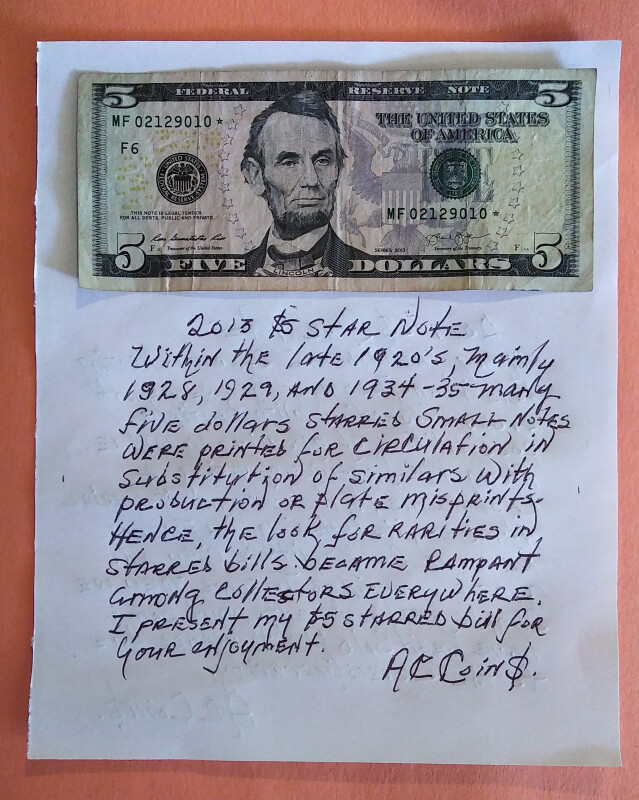 5 FEDERAL RESERVE NOTE 5
MF 02129010 *
THE UNITED STATES
OF AMERICA
F6
THIS NOTE IS LEGAL TENDER
FOR ALL DEBTS, PUBLIC AND PRIVATE
MF 02129010 *
Treasurer of the United States
SERIES 2013
Secretary of the Treasury
5 FIVE LINCOLN DOLLARS 5
2013 $5 STAR NOTE
Within the late 1920's, Mainly
1928, 1929, AND 1934-35 many
five dollars starred SMALL NOTES
WERE PRINTED FOR CIRCULATION IN
Substitution of similars with
production or plate misprints.
HENCE, the look for RARITIES in
STARRED bills became RAMPANT
among COLLECTORS EVERYWHERE.
I PRESENT my $5 STARRED bill for
your enjoyment.
AC Coin$.